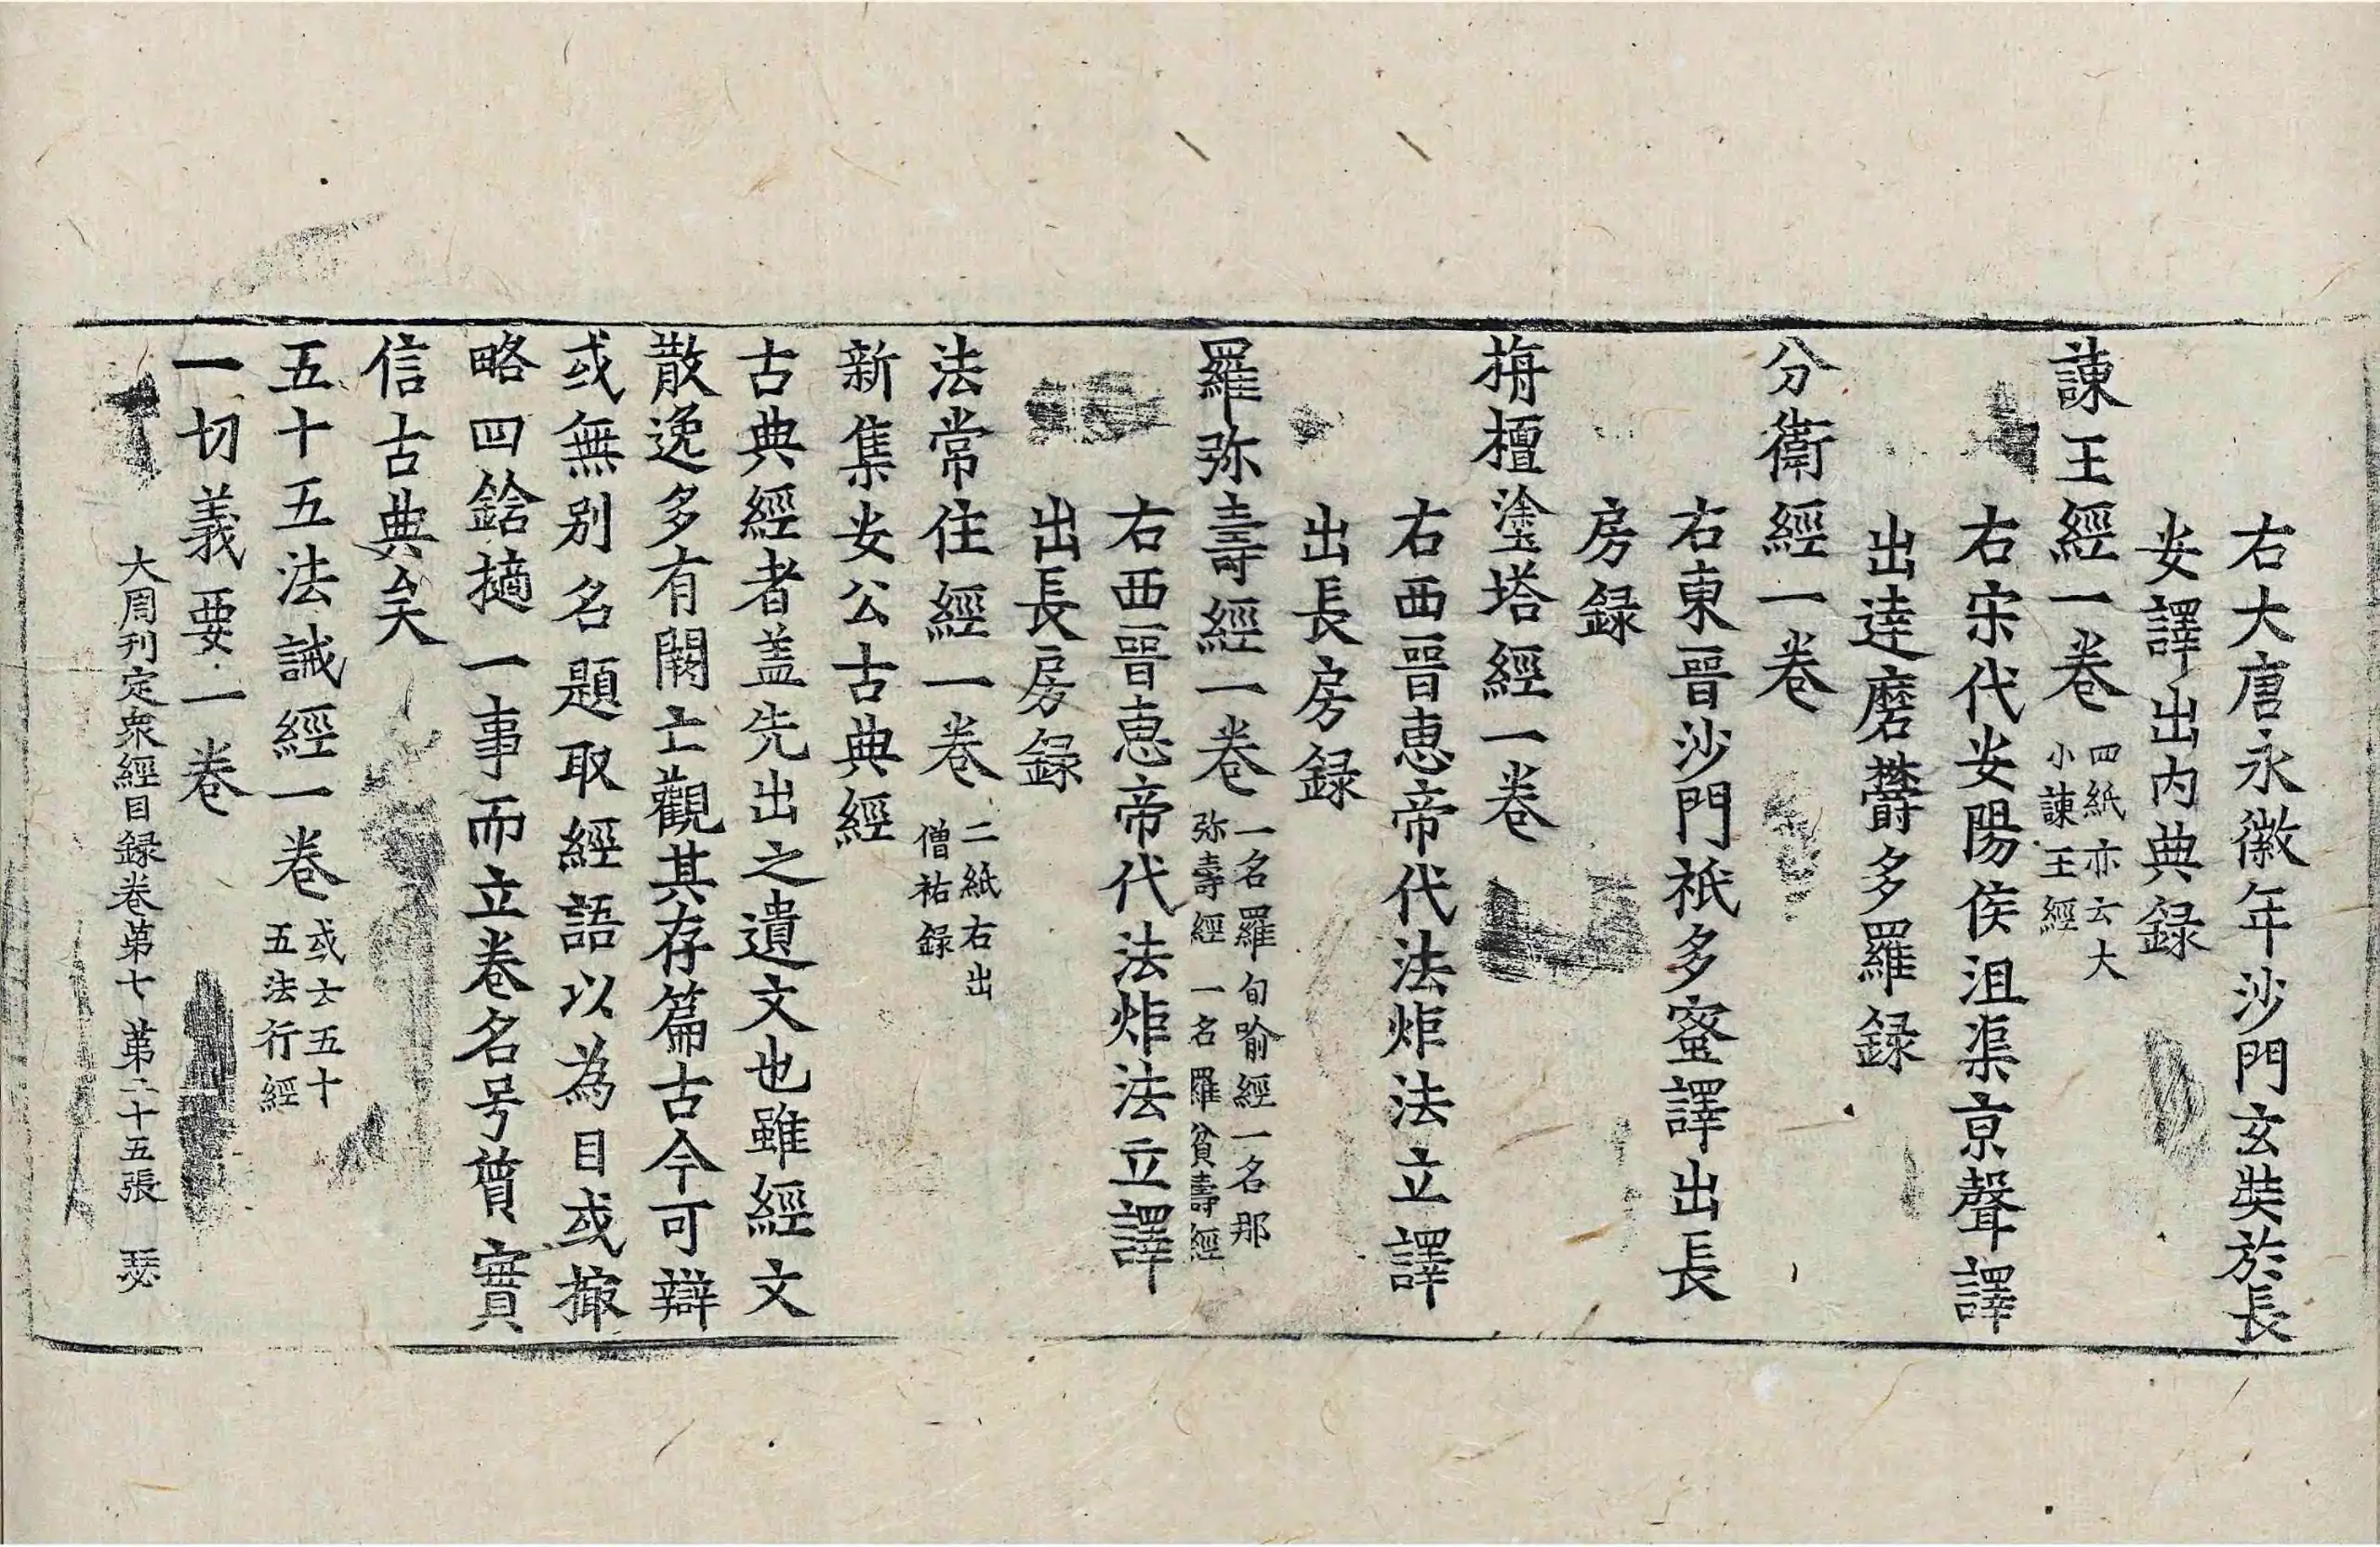 右大唐永徽年沙門玄奘於長
安譯出內典録
諫王經一卷 四紙亦云大小諫王經
右宋代安陽侯沮渠京聲譯
出達磨欝多羅録
分衞經一卷
右東晉沙門祇多蜜譯出長
房録
栴檀塗塔經一卷
右西晉惠帝代法炬法立譯
出長房録
羅弥壽經一卷 一名羅旬喻經一名那弥壽經一名羅貧壽經
右西晉惠帝代法炬法立譯
出長房録
法常住經一卷 二紙右出僧祐録
新集安公古典經
古典經者盖先出之遺文也雖經文
散逸多有闕亡觀其存篇古今可辯
或無别名題取經語以為目或撮
略四鋡摘一事而立卷名号曾實
信古典矣
五十五法誡經一卷 或云五十五法行經
一切義要一卷
大周刊定衆經目録卷第七 第二十五張 瑟